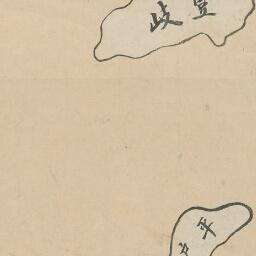 壹岐
平戸